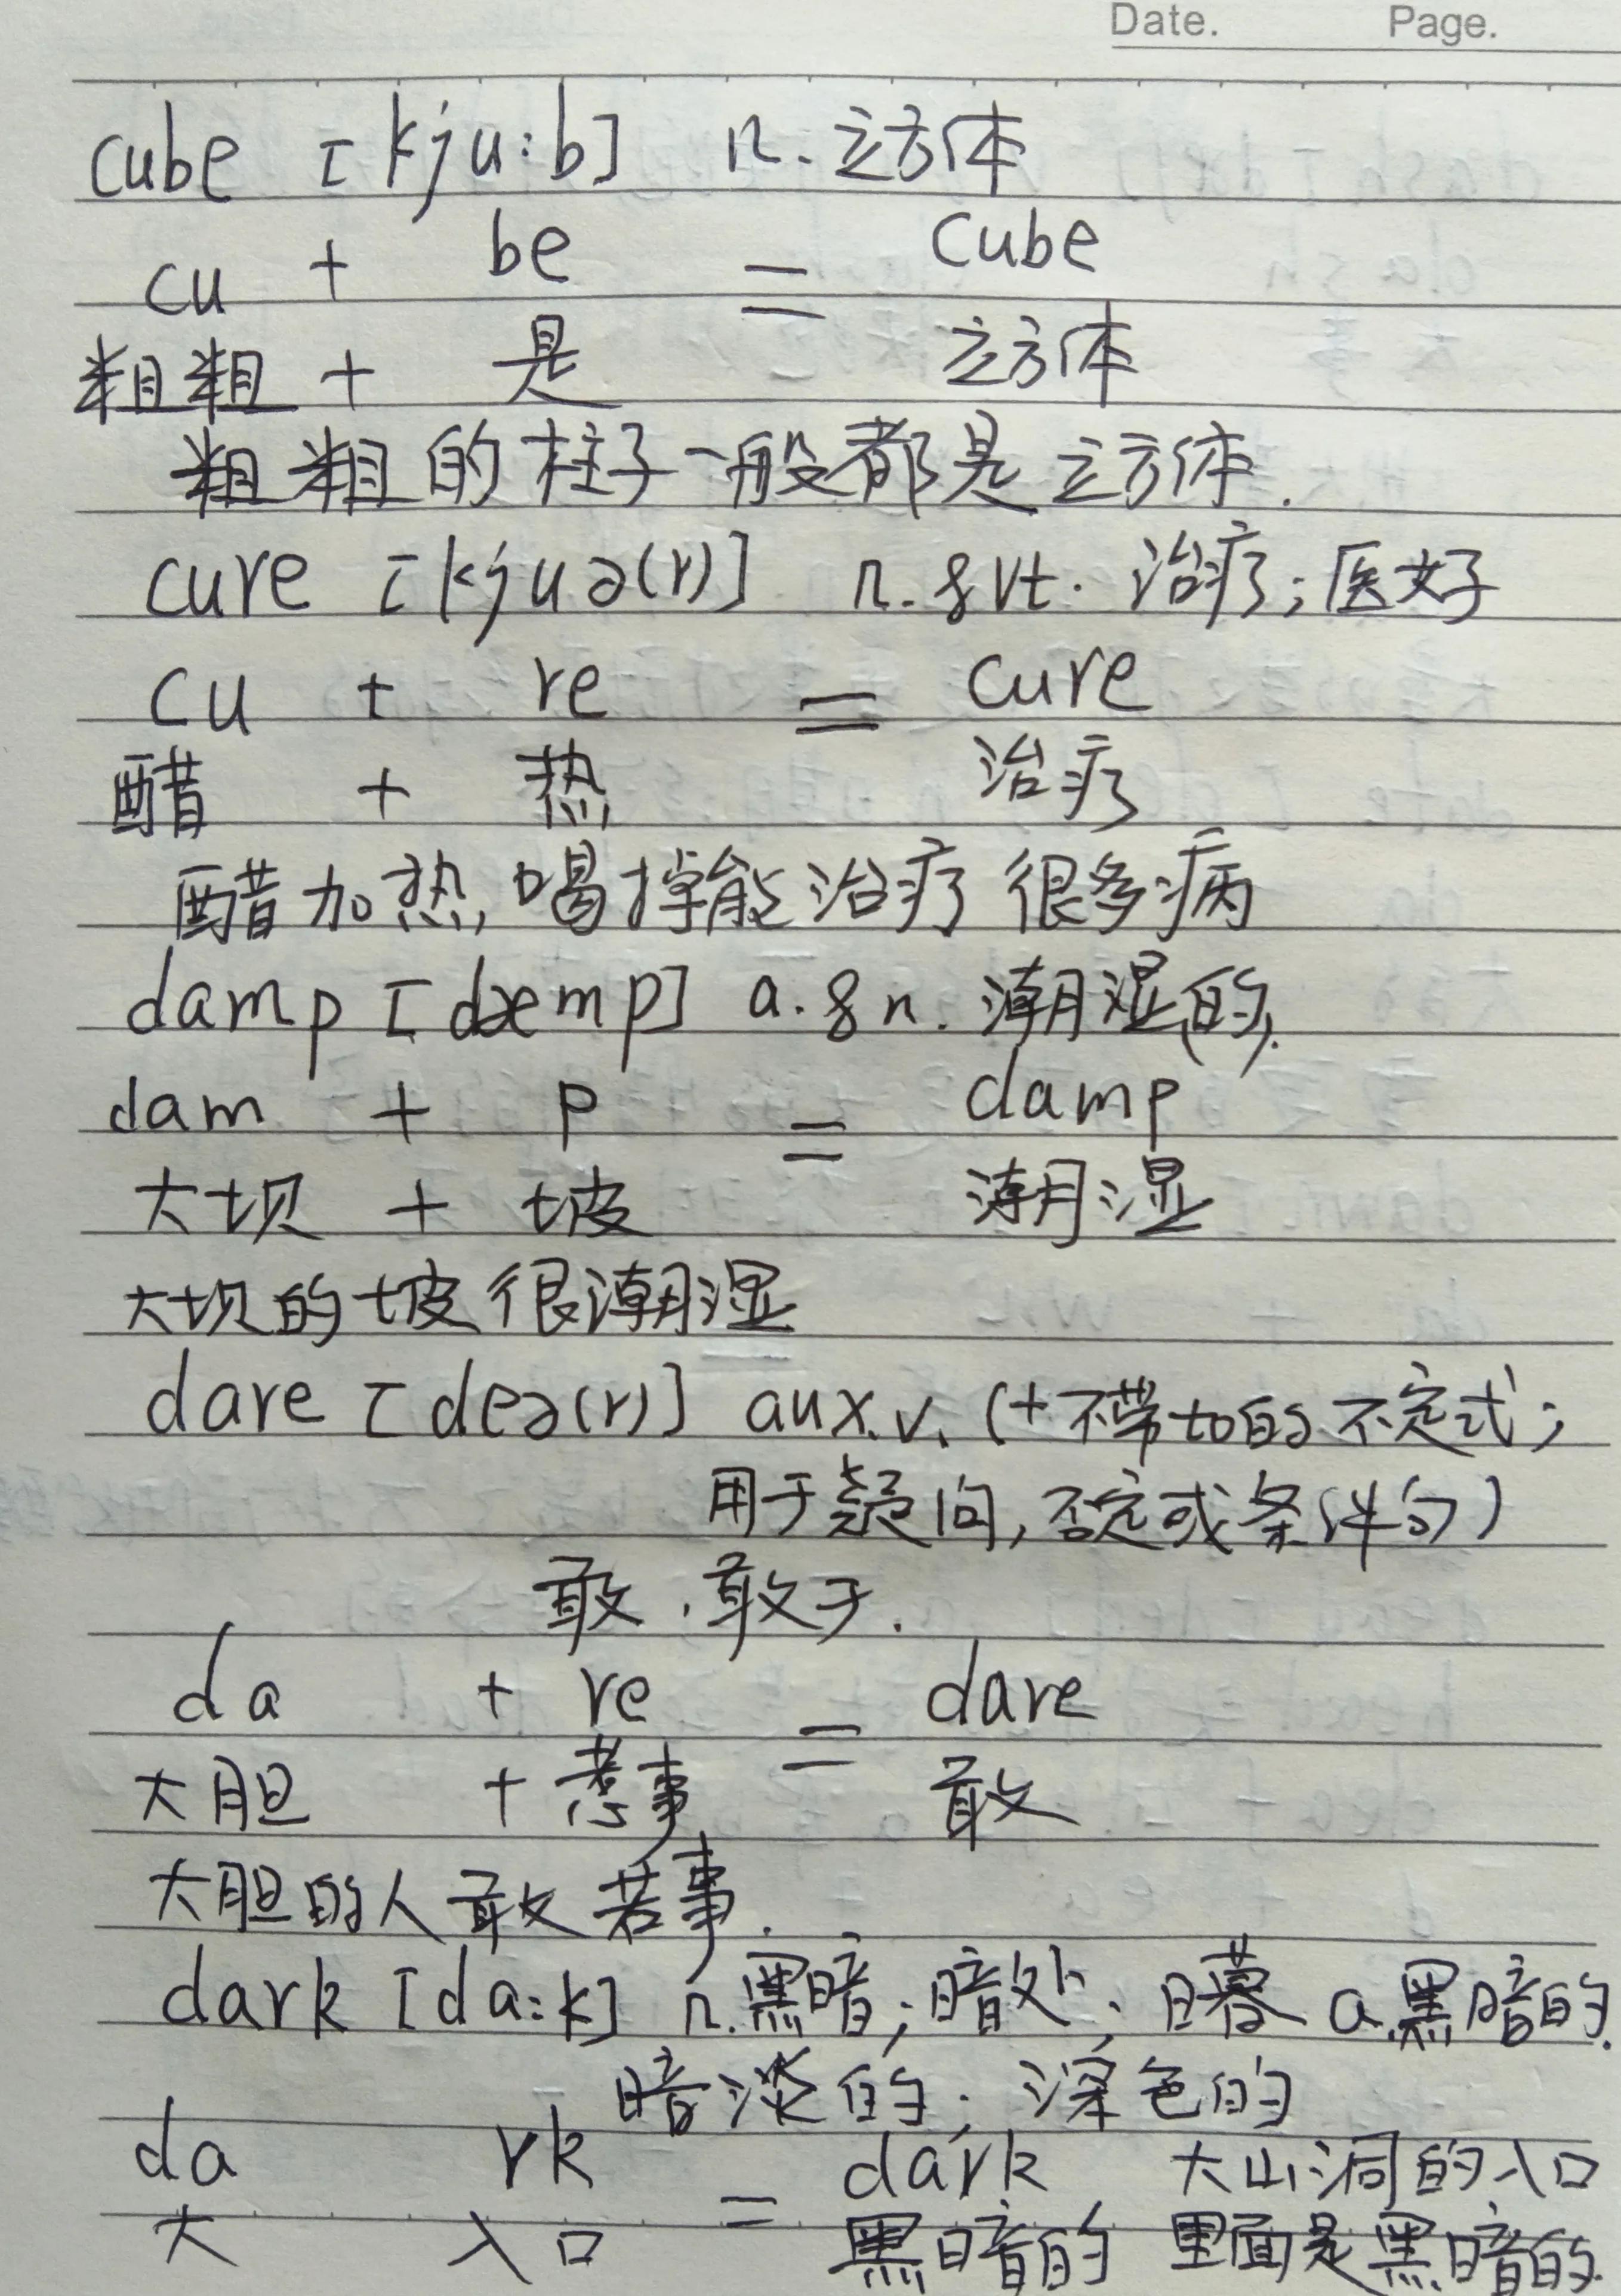 Date. Page.
cube [kju:b] n. 立方体
cu + be = cube
粗粗 + 是 立方体
粗粗的柱子一般都是立方体.
cure [kjuə(r)] n.&vt. 治疗;医好
cu + re = cure
醋 + 热 治疗
醋加热,喝掉能治疗很多病
damp [dæmp] a.&n. 潮湿(的).
dam + p = damp
大坝 + 坡 潮湿
大坝的坡很潮湿
dare [deə(r)] aux.v. (+不带to的不定式;
用于疑问,否定或条件句)
敢,敢于.
da + re = dare
大胆 + 惹事 敢
大胆的人敢惹事.
dark [da:k] n.黑暗;暗处;日暮 a.黑暗的.
暗淡的;深色的
da rk = dark 大山洞的入口
大 入口 黑暗的 里面是黑暗的.